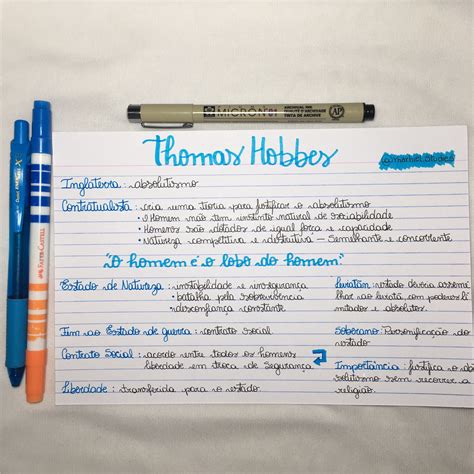 MICRON 01
ARCHIVAL INK
AP
Thomas Hobbes
Inglaterra: absolutismo
Contratualista: cria uma teoria para justificar o absolutismo
• O Homem não tem instinto natural de sociabilidade
• Homens são dotados de igual força e capacidade
• Natureza competitiva e destrutiva - Semelhante e concorrente
"O homem é o lobo do homem"
Estado de Natureza: instabilidade e insegurança
• batalha pela sobrevivência
• desconfiança constante
Fim ao Estado de guerra: contrato social
Contrato Social: acordo entre todos os homens
liberdade em troca de segurança
Liberdade: transferida para o estado.
Leviatãn: estado deveria asseme
lhar ao leviatã com poderes ili
mitados e absolutos.
Soberano: Personificação do
estado
Importância: justifica o ab
solutismo sem recorrer a
religião.
FABER-CASTELL